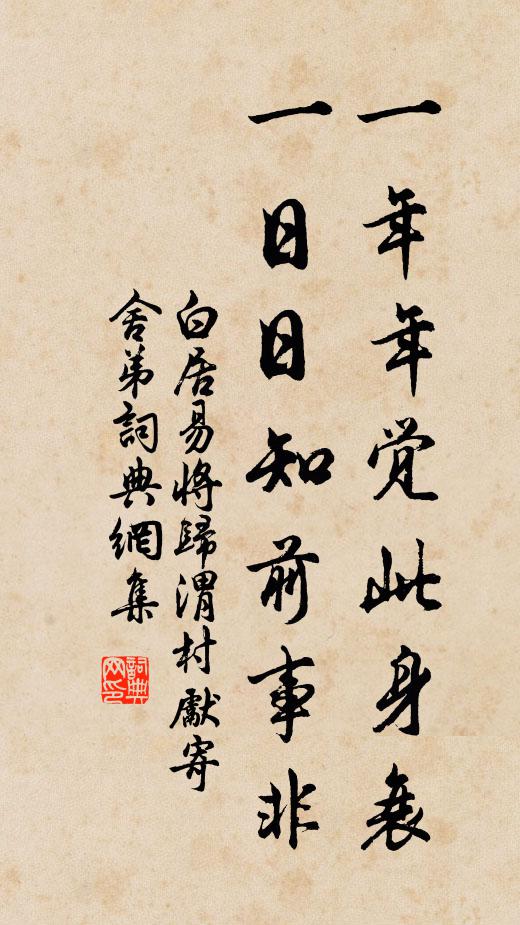 一年年觉此身衰
一日日知前事非
白居易将歸渭村獻寄
舍弟詞典網集
詞典
网印